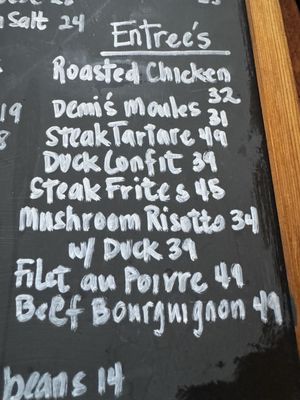 Salt 24
Entreé's
Roasted Chicken
32
Demi's Moules 31
Steak Tartare 49
Duck Confit 39
Steak Frites 45
Mushroom Risotto 34
w/ Duck 39
19
8
Filet au Poivre 49
Beef Bourguignon 49
beans 14